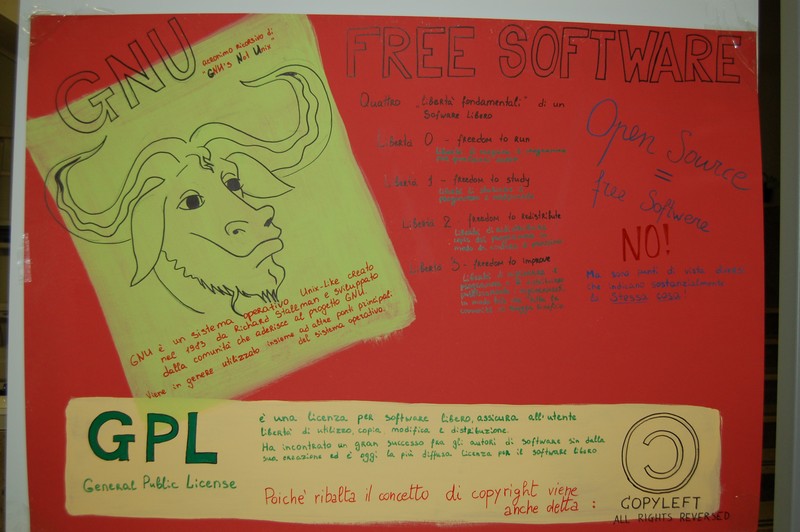 GNU
acronimo ricorsivo di
"GNU's Not Unix"
GNU è un sistema operativo Unix-Like creato
nel 1983 da Richard Stallman e sviluppato
dalla comunità che aderisce al progetto GNU.
Viene in genere utilizzato insieme ad altre parti principali
del sistema operativo.
FREE SOFTWARE
Quattro "libertà fondamentali" di un
Sofware Libero
Libertà 0 - freedom to run
Libertà di eseguire il programma
Libertà 1 - freedom to study
Libertà 2 - freedom to redistribute
Libertà 3 - freedom to improve
Open Source
=
free Softwere
NO!
Ma sono punti di vista diversi
che indicano sostanzialmente
la stessa cosa!
GPL
General Public License
è una licenza per software libero, assicura all'utente
libertà di utilizzo, copia, modifica e distribuzione.
Ha incontrato un gran successo fra gli autori di software sin dalla
sua creazione ed è oggi la più diffusa licenza per il software libero
Poiche' ribalta il concetto di copyright viene
anche detta :
COPYLEFT
ALL RIGHTS REVERSED